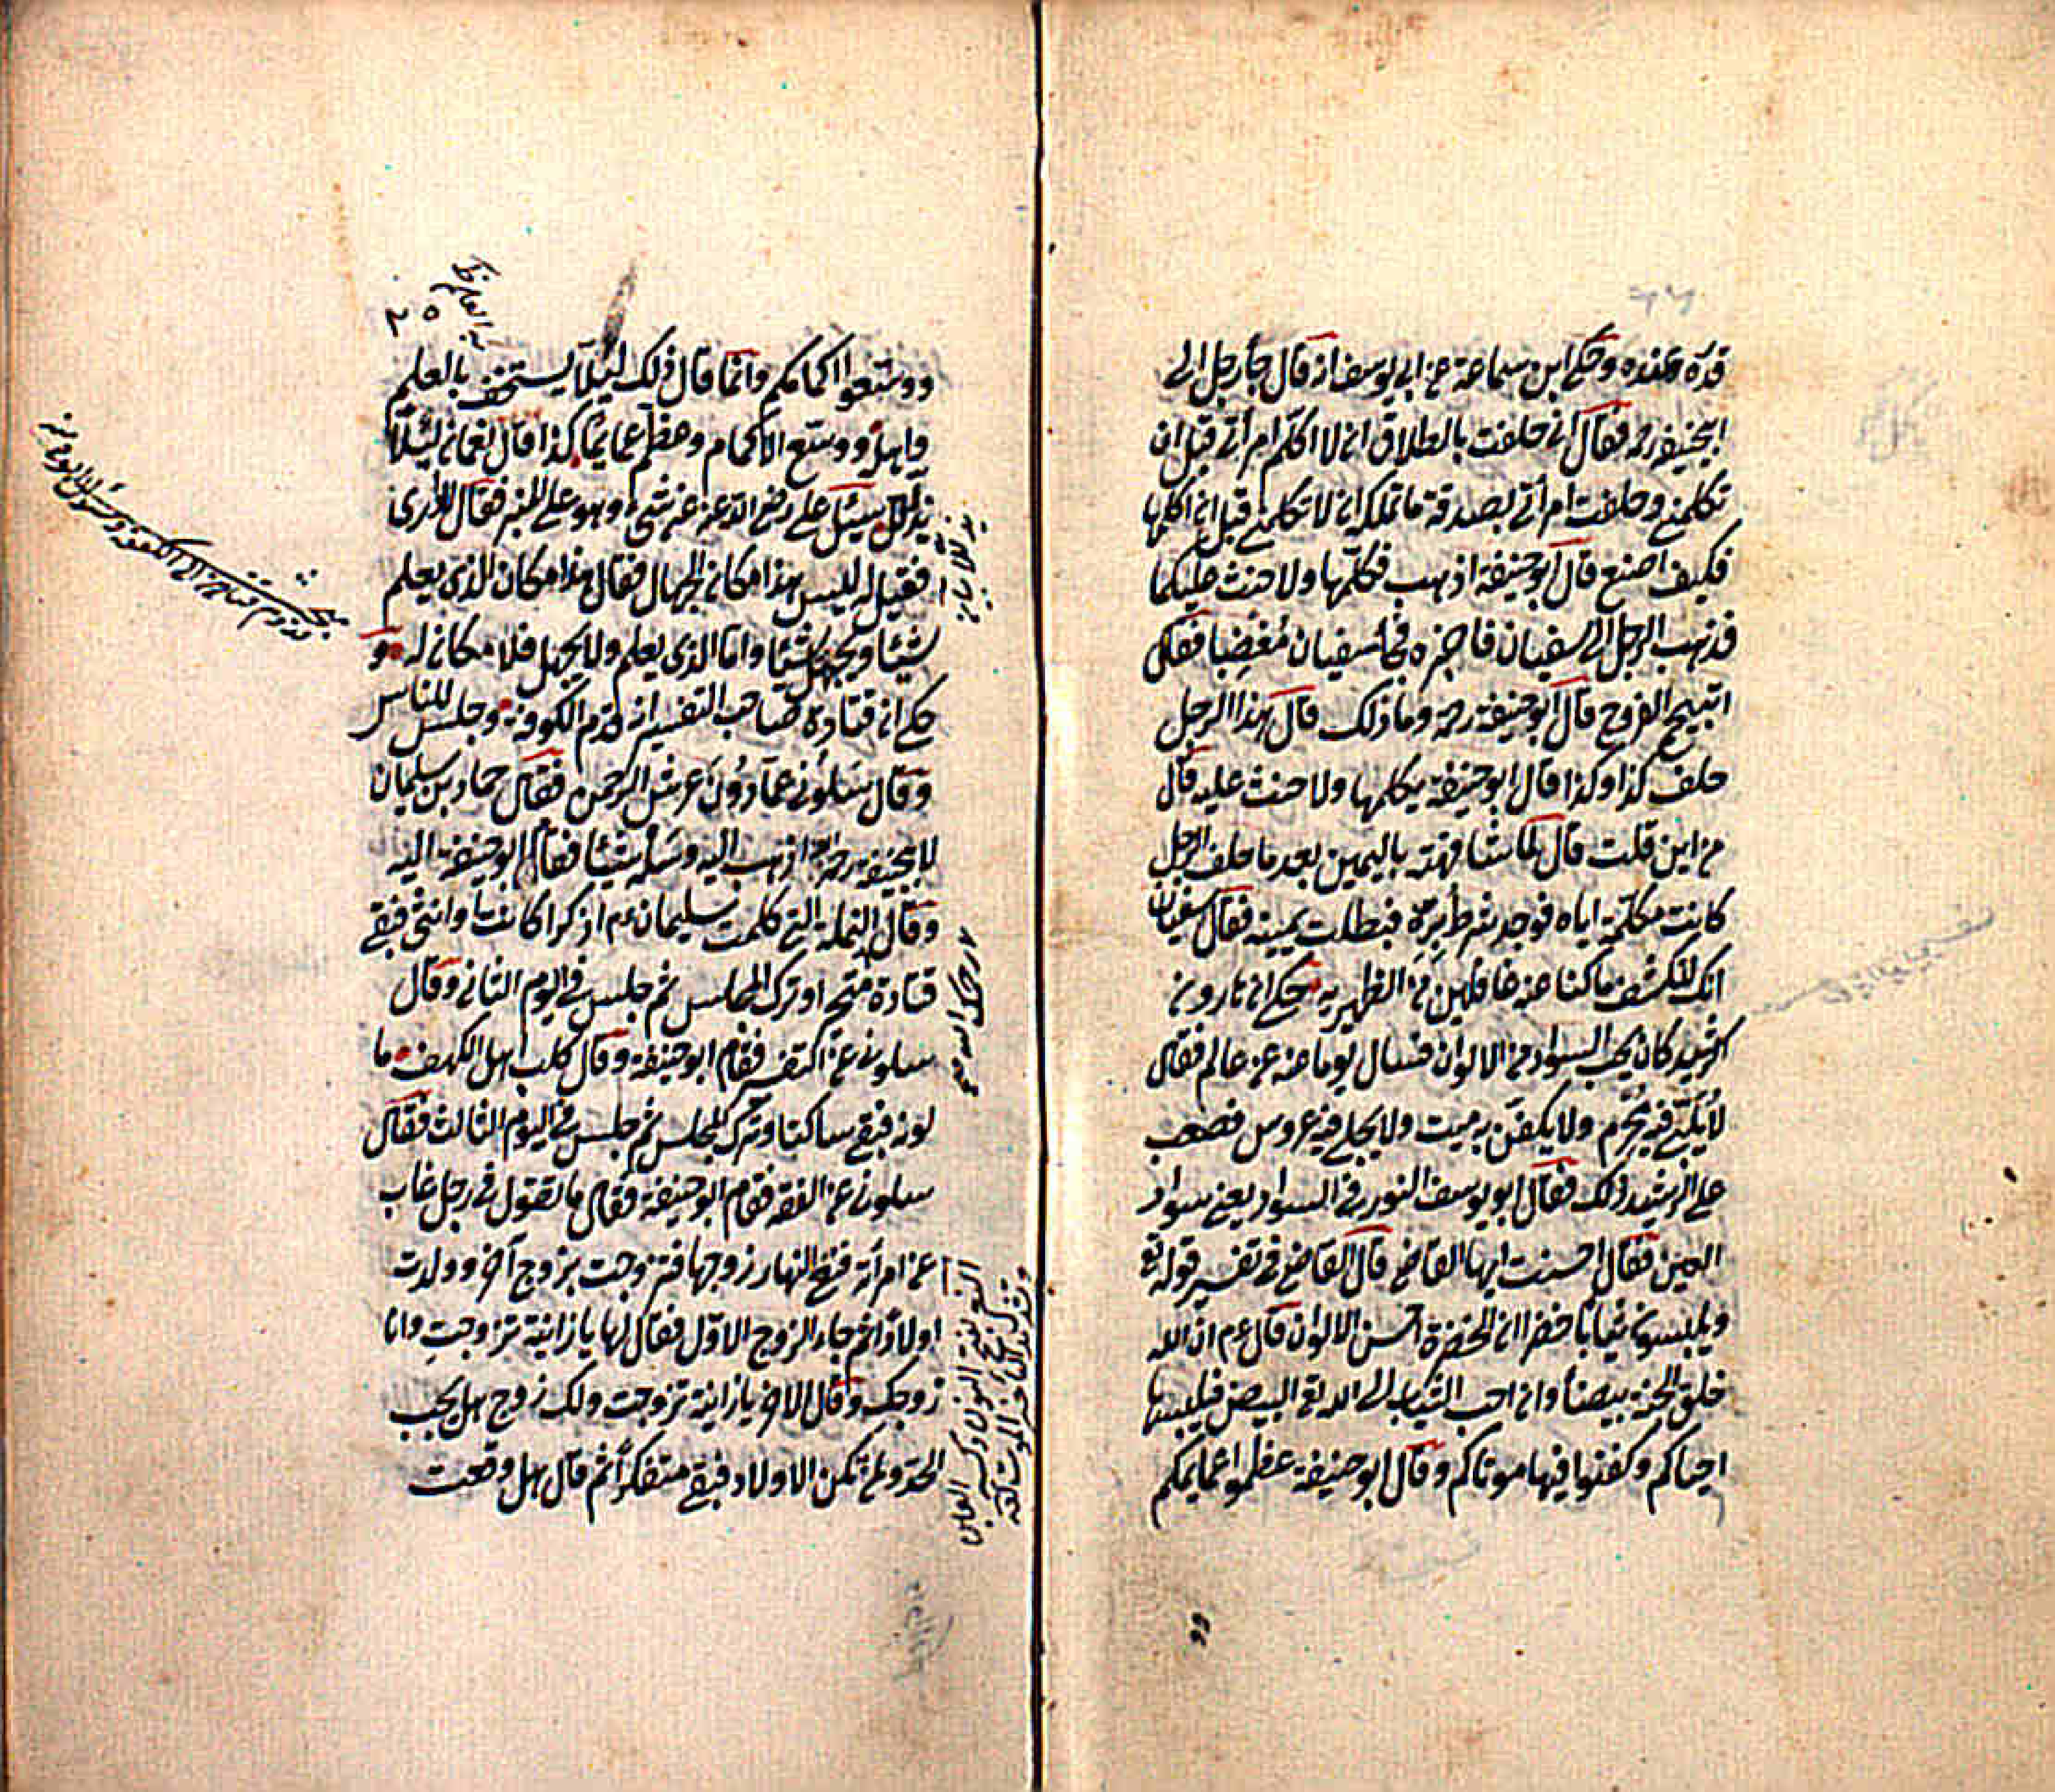 قدره عنده وحكى ابن سماعة عن ابى يوسف انه قال جاء رجل الى
ابيحنيفة رحه فقال انى حلفت بالطلاق انى لا اكلم امرأتى قبل ان
تكلمنى وحلفت امرأتى بصدقة ما تملك انى لا تكلمنى قبل انى اكلمها
فكيف اصنع قال ابو حنيفة اذهب فكلمها ولا حنث عليكما
فذهب الرجل الى سفيان فاخبره فجاء سفيان مُغضِبا فقال
اتبيح الفروج قال ابو حنيفة رحه وما ذلك قال هذا الرجل
حلف كذا وكذا قال ابو حنيفة يكلمها ولا حنث عليه قال
من اين قلت قال لما شافهته باليمين بعد ما حلف الرجل
كانت مكلّمة اياه فوجد شرط برّه فبطلت يمينه فقال سفيان
انك لتكشف ما كنا عنه غافلين من الظهيرية حكى ان هارون
الرشيد كان يحب السواد من الالوان فسال يوما عنه عن عالم فقال
لا يُلبّى فيه مُحْرِم ولا يكفّن به ميت ولا يجلى فيه عروس فصعب
على الرشيد ذلك فقال ابو يوسف النور فى السواد يعنى سواد
العين فقال احسنت ايها القاضى قال القاضى فى تفسير قوله تع
ويلبسون ثيابًا خضرا ان الخضرة احسن الالوان قال عم ان الله
خلق الجنة بيضا وان احب الثياب الى الله تع البيض فيلبسها
احياكم وكفنوا فيها موتاكم وقال ابو حنيفة عظموا عمايمكم
وو
٢٥
ووسّعوا اكمامكم وانما قال ذلك ليلا يستخف بالعلم
واهله ووسّع الاكمام وعظّم عمايمًا كذا قال نعمان لئلّا
يذلل سئل على رضى الله عنه عن شىء وهو على المنبر فقال لا ادرى
فقيل له ليس هذا مكان الجهال فقال هذا مكان الذى يعلم
شيئا ويجهل شيئا واما الذى يعلم ولا يجهل فلا مكان له و
حكى ان قتادة صاحب التفسير انه قدم الكوفة وجلس للناس
وقال سَلونى عمّا دُونَ عرش الرحمن فقال حماد بن سليمان
لابيحنيفة رحه اذهب اليه وسَلْهُ شيئا فقام ابو حنيفة اليه
وقال النملة التى كلمت سليمان عم اذكرا كانت او انثى فبقى
قتادة متحيرا وترك المجلس ثم جلس فى اليوم الثانى وقال
سلونى عن التفسير فقام ابو حنيفة وقال كلب اهل الكهف ما
لونه فبقى ساكتا وترك المجلس ثم جلس فى اليوم الثالث فقال
سلونى عن الفقه فقام ابو حنيفة فقال ما تقول فى رجل غاب
عن امرأته فنعى اليها زوجها فتزوجت بزوج آخر وولدت
اولاداً ثم جاء الزوج الاول فقال لها يا زانية تزوجتِ وانا
زوجك وقال الاخر يا زانية تزوجت ولك زوج هل يجب
الحد ولمن تكن الاولاد فبقى متفكراً ثم قال هل وقعت